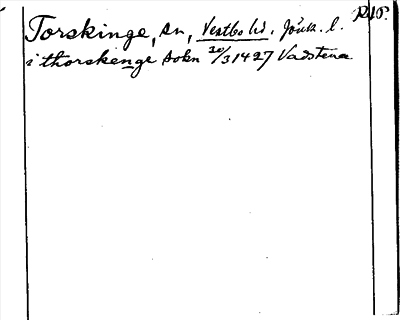 Torskinge, sn, Vestbo hd, Jönk. l. RAP.
i thorskenge sokn 20/3 1427 Vadstena